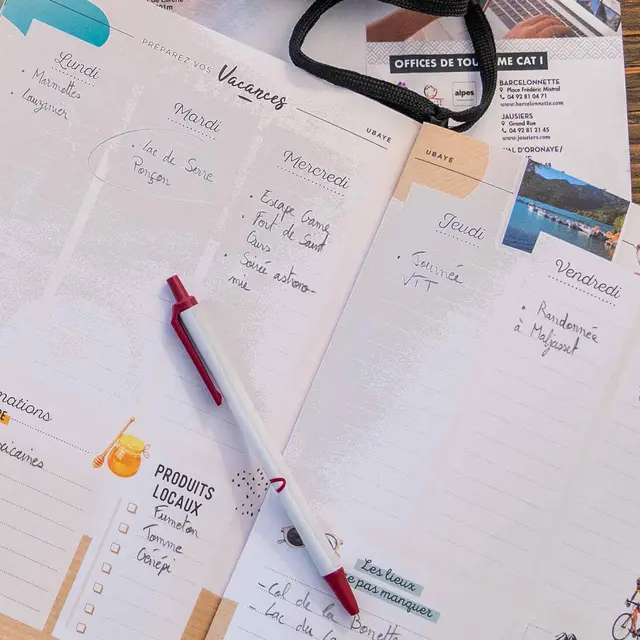 PREPAREZ VOS Vacances
UBAYE
Lundi
• Marmottes
• Lauzanier
Mardi
• Lac de Serre
Ponçon
Mercredi
• Escape Game
• Fort de Saint
Ours
• Soirée astrono-
mie
UBAYE
Jeudi
• Journée
VTT
Vendredi
• Randonnée
à Maljasset
OFFICES DE
ME CAT I
alpes
BARCELONNETTE
Place Frédéric Mistral
04 92 81 04 71
www.barcelonnette.com
JAUSIERS
Grand Rue
04 92 81 21 45
www.jausiers.com
VAL D'ORONAYE/
PRODUITS
LOCAUX
Fumeton
Tomme
Génépi
Les lieux
e pas manquer
- Col de la Bonette
- Lac du